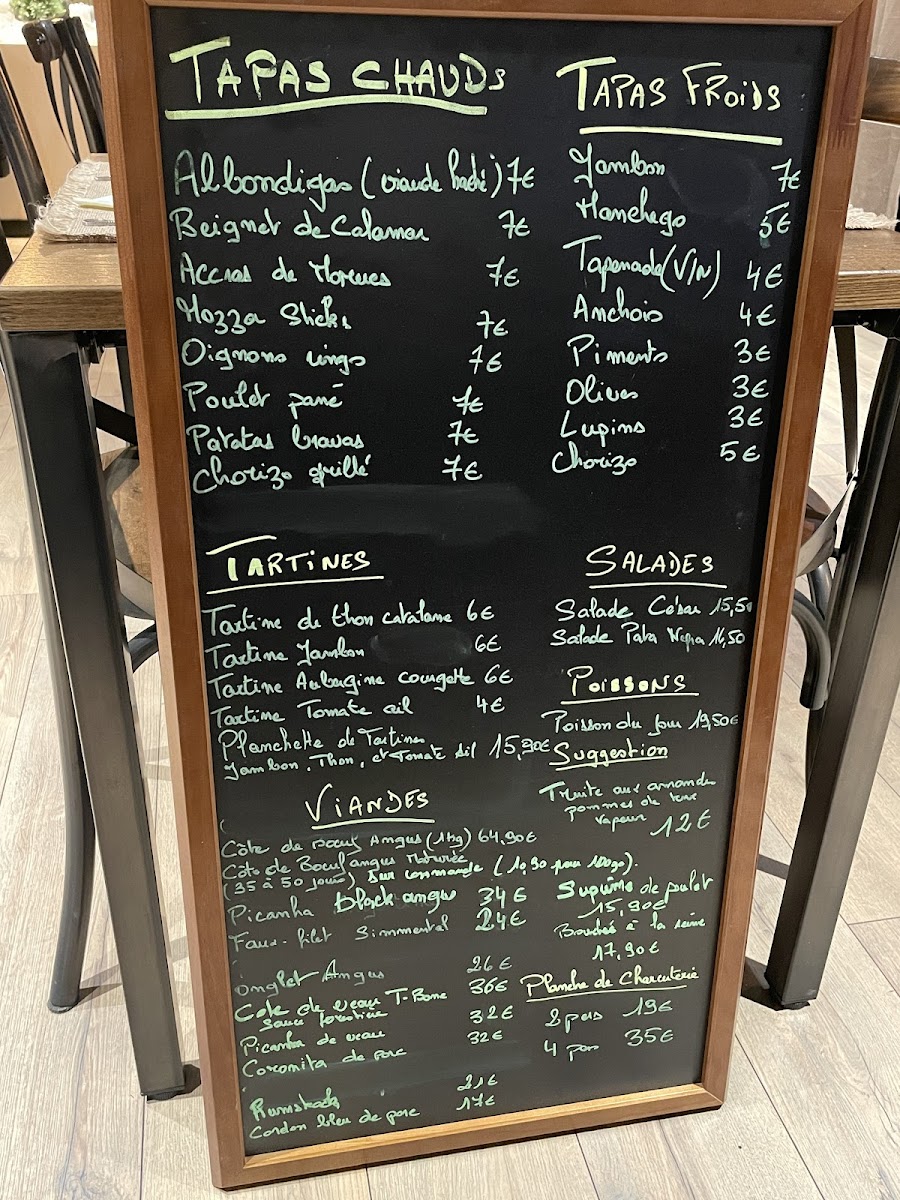 TAPAS CHAUDS
Albondigas (viande haché) 7€
Beignet de Calamar 7€
Accras de Morues 7€
Mozza Sticks 7€
Oignons rings 7€
Poulet pané 7€
Patatas bravas 7€
Chorizo grillé 7€
TAPAS FROIDS
Jambon 7€
Manchego 5€
Tapenade (V/N) 4€
Anchois 4€
Piments 3€
Olives 3€
Lupins 3€
Chorizo 5€
TARTINES
Tartine de thon catalane 6€
Tartine Jambon 6€
Tartine Aubergine courgette 6€
Tartine Tomate ail 4€
Planchette de Tartines
Jambon, Thon, et Tomate ail 15,90€
SALADES
Salade César 15,50
Salade Pata Negra 16,50
POISSONS
Poisson du jour 19,50€
Suggestion
Truite aux amandes
pommes de terre
vapeur 12€
Suprême de poulet
15,90€
Bouchée à la reine
17,90€
Planche de Charcuterie
2 pers 19€
4 pers 35€
VIANDES
Côte de boeuf Angus (1kg) 64,90€
Côte de Boeuf angus Maturée
(35 à 50 jours) Sur commande (10,90 pour 100g).
Picanha black angus 34€
Faux-filet Simmental 24€
onglet Angus 26€
Cote de veau T-Bone 36€
sauce forestière
Picanha de veau 32€
Coromita de porc 32€
Rumsteck 21€
Cordon bleu de porc 17€